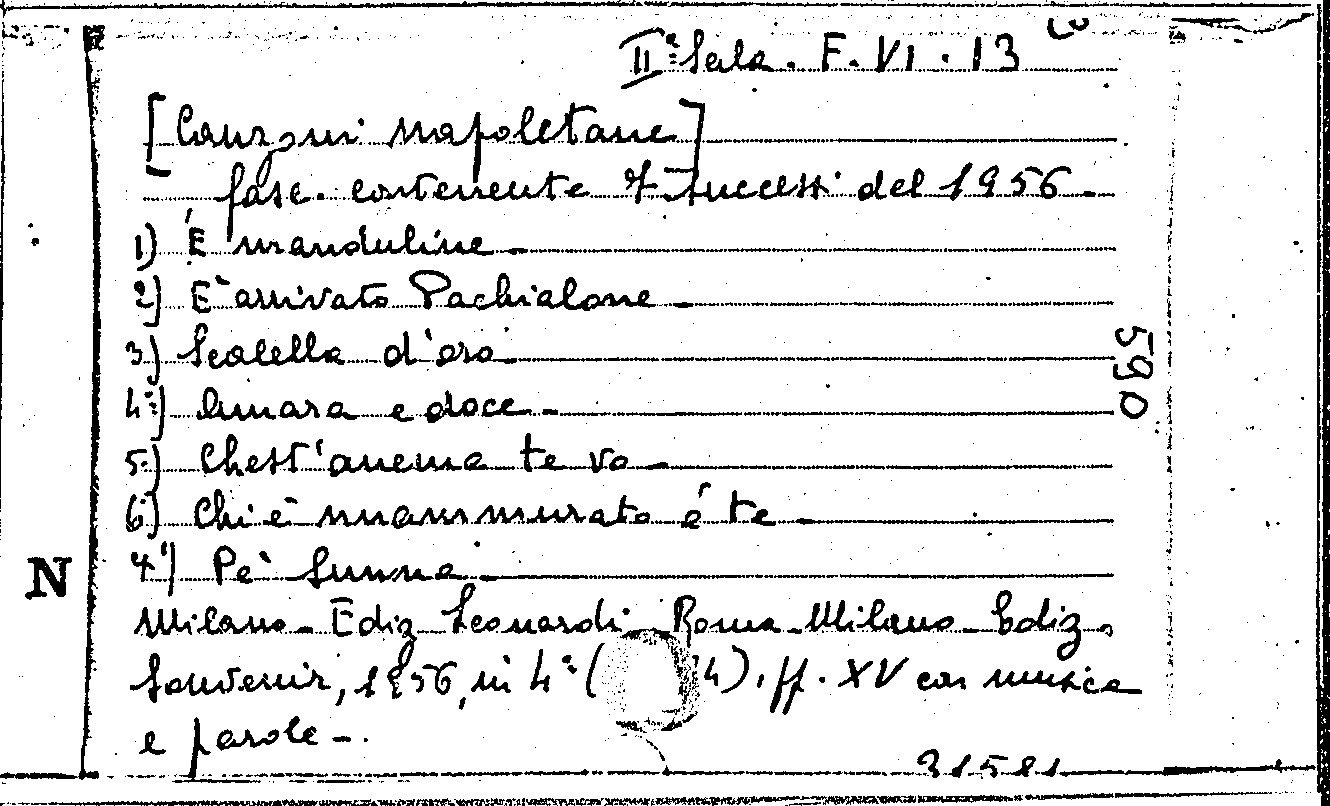 IIª Sala. F. VI. 13
[Canzoni napoletane]
fasc. contenente 7 successi del 1956.
1) 'E manduline
2) E' arrivato Pachialone
3) Scalella d'oro
4) Amara e doce
5) Chest'anema te vo
6) Chi è nnammurato 'e te
7) Pe' Sunnà
590
N
Milano - Ediz. Leonardi - Roma - Milano - Ediz.
Souvenir, 1956, in 4° ( 4). ff. XV con musica
e parole -.
31581